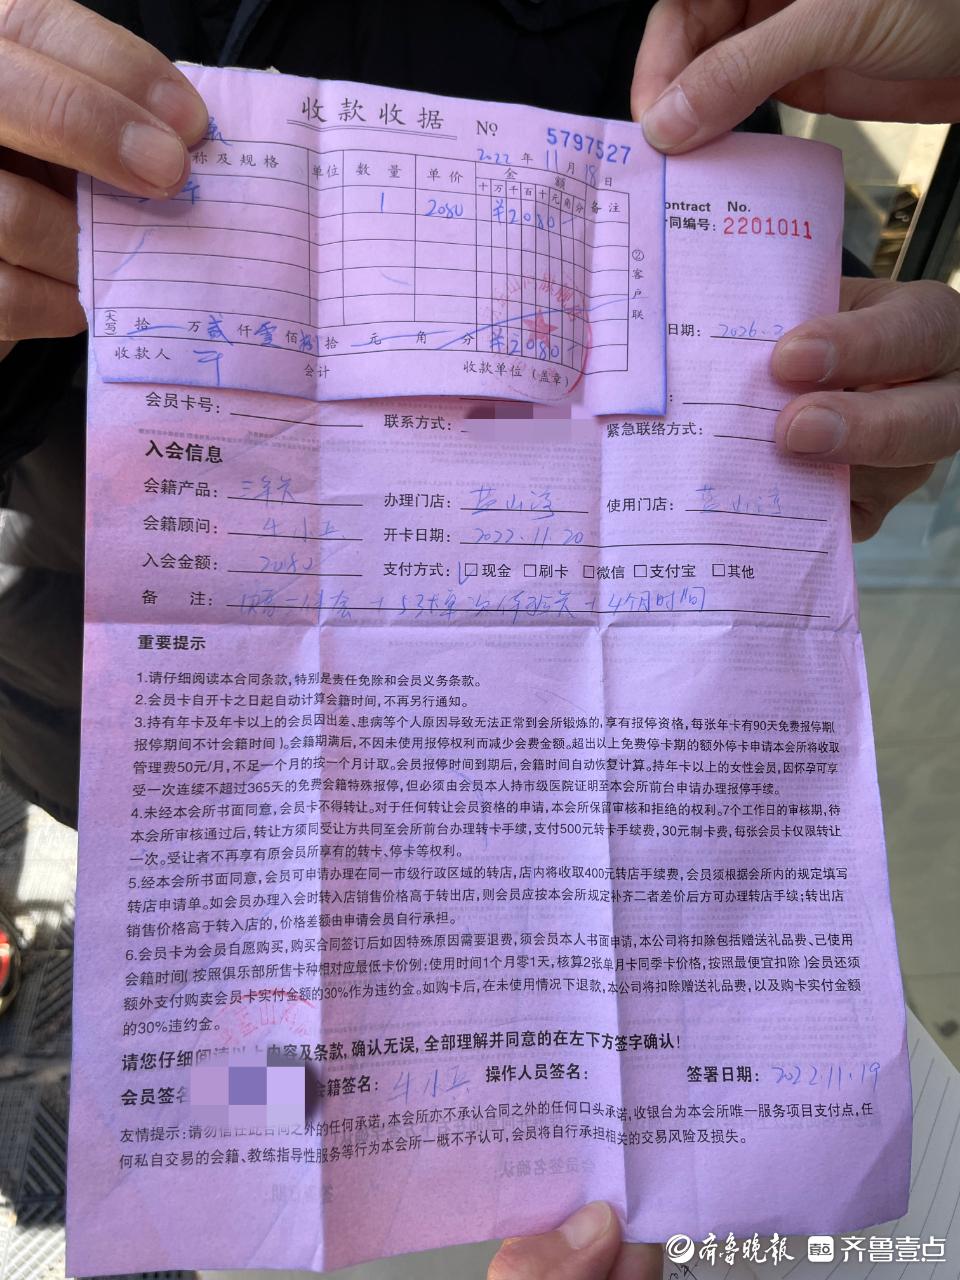 收款收据 No 5797527
2022 年 11 月 18 日
称及规格 单位 数量 单价 金额 备注
十 万 千 百 十 元 角 分
1 2080 ¥2080
②客户联
(大写) 拾 万 贰 仟 零 佰 捌 拾 元 角 分 ¥2080
收款人 会计 收款单位(盖章)
ontract No.
同编号: 2201011
日期: 2026.2
会员卡号: 联系方式: 紧急联络方式:
入会信息
会籍产品: 三年卡 办理门店: 蓝山湾 使用门店: 蓝山湾
会籍顾问: 牛小五 开卡日期: 2022.11.20
入会金额: 2080 支付方式: □现金 □刷卡 □微信 □支付宝 □其他
备 注: +5张单次体验卡+4个月时间
重要提示
1.请仔细阅读本合同条款,特别是责任免除和会员义务条款。
2.会员卡自开卡之日起自动计算会籍时间,不再另行通知。
3.持有年卡及年卡以上的会员因出差、患病等个人原因导致无法正常到会所锻炼的,享有报停资格,每张年卡有90天免费报停期(
报停期间不计会籍时间)。会籍期满后,不因未使用报停权利而减少会费金额。超出以上免费停卡期的额外停卡申请本会所将收取
管理费50元/月,不足一个月的按一个月计取。会员报停时间到期后,会籍时间自动恢复计算。持年卡以上的女性会员,因怀孕可享
受一次连续不超过365天的免费会籍特殊报停,但必须由会员本人持市级医院证明至本会所前台申请办理报停手续。
4.未经本会所书面同意,会员卡不得转让。对于任何转让会员资格的申请,本会所保留审核和拒绝的权利。7个工作日的审核期,待
本会所审核通过后,转让方须同受让方共同至会所前台办理转卡手续,支付500元转卡手续费,30元制卡费,每张会员卡仅限转让
一次。受让者不再享有原会员所享有的转卡、停卡等权利。
5.经本会所书面同意,会员可申请办理在同一市级行政区域的转店,店内将收取400元转店手续费,会员须根据会所内的规定填写
转店申请单。如会员办理入会时转入店销售价格高于转出店,则会员应按本会所规定补齐二者差价后方可办理转店手续;转出店
销售价格高于转入店的,价格差额由申请会员自行承担。
6.会员卡为会员自愿购买,购买合同签订后如因特殊原因需要退费,须会员本人书面申请,本公司将扣除包括赠送礼品费、已使用
会籍时间(按照俱乐部所售卡种相对应最低卡价例:使用时间1个月零1天,核算2张单月卡同季卡价格,按照最便宜扣除)会员还须
额外支付购卖会员卡实付金额的30%作为违约金。如购卡后,在未使用情况下退款,本公司将扣除赠送礼品费,以及购卡实付金额
的30%违约金。
请您仔细阅读以上内容及条款,确认无误,全部理解并同意的在左下方签字确认!
会员签名 会籍签名: 牛小五 操作人员签名: 签署日期: 2022.11.19
友情提示:请勿信任此合同之外的任何承诺,本会所亦不承认合同之外的任何口头承诺,收银台为本会所唯一服务项目支付点,任
何私自交易的会籍、教练指导性服务等行为本会所一概不予认可,会员将自行承担相关的交易风险及损失。
齐鲁晚报 齐鲁壹点